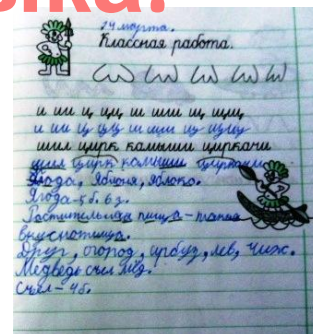 24 марта.
Классная работа.
и ии ц цц ш шш щ щщ
и ии ц цц ш шш щ щщ
шил цирк камыши циркачи
шил цирк камыши циркачи
Ягода, яблоня, яблоко.
Ягода-5б. 6з.
Растительная пища-
вкуснотища.
Друг, огород, арбуз, лев, чиж.
Медведь съел мёд.
Съел-4б.